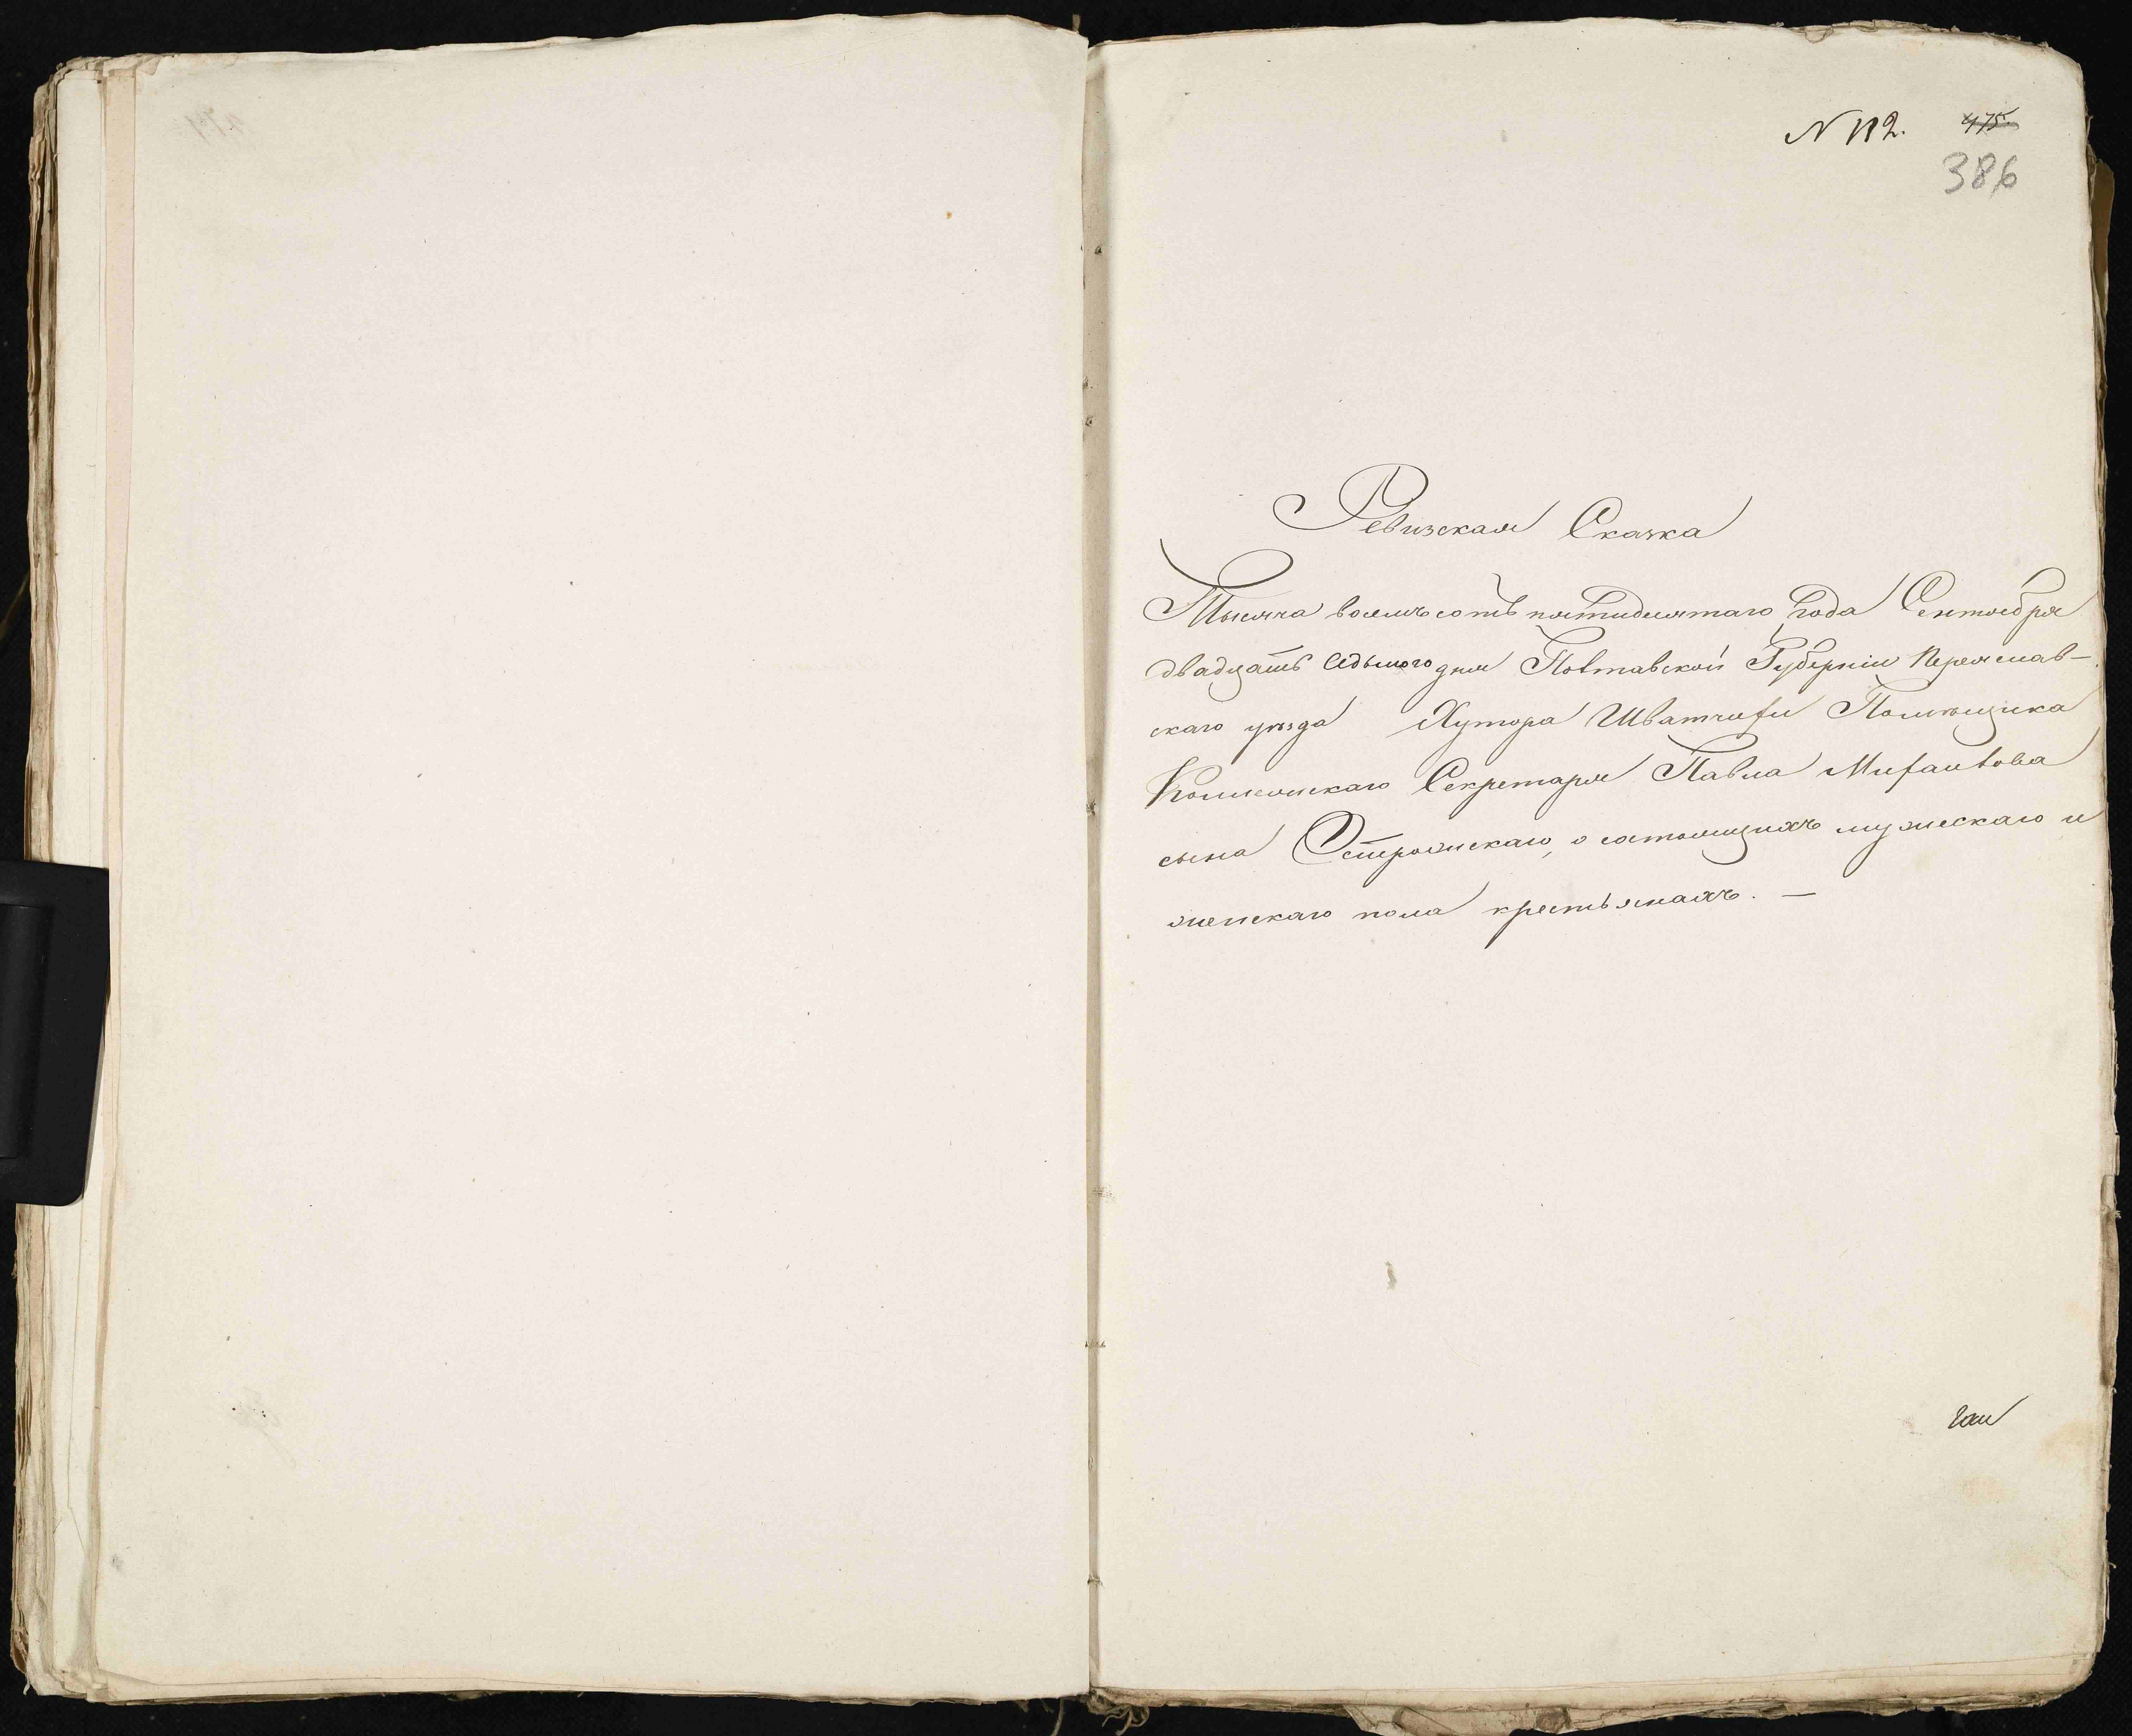 N 112. 475.
386
Ревизская Сказка
Тысяча восемь сотъ пятидесятаго года Сентября
двадцать седьмого дня Полтавской Губерніи Переяслав-
скаго уѣзда Хутора Помѣщика
Коллежскаго Секретаря Павла Михайлова
сына Острожскаго, о состоящихъ мужескаго и
женскаго пола крестьянахъ. —